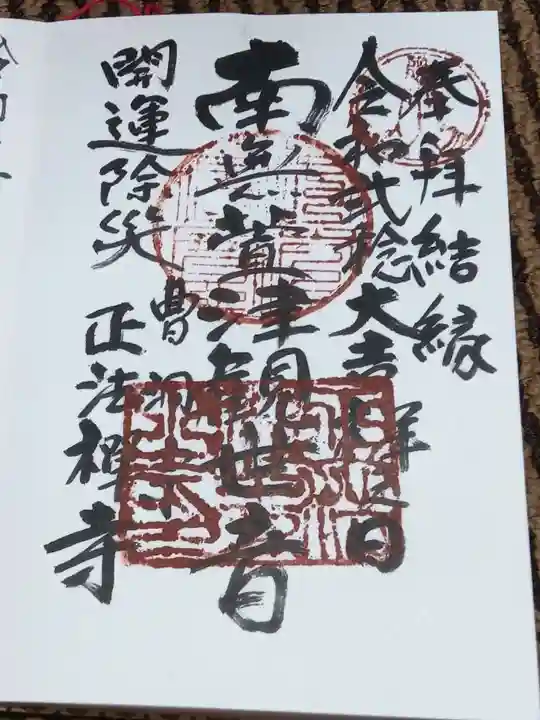 奉拜結縁
令和弐稔大吉祥日
南無萱津観世音
開運除災
曹洞
正法禅寺